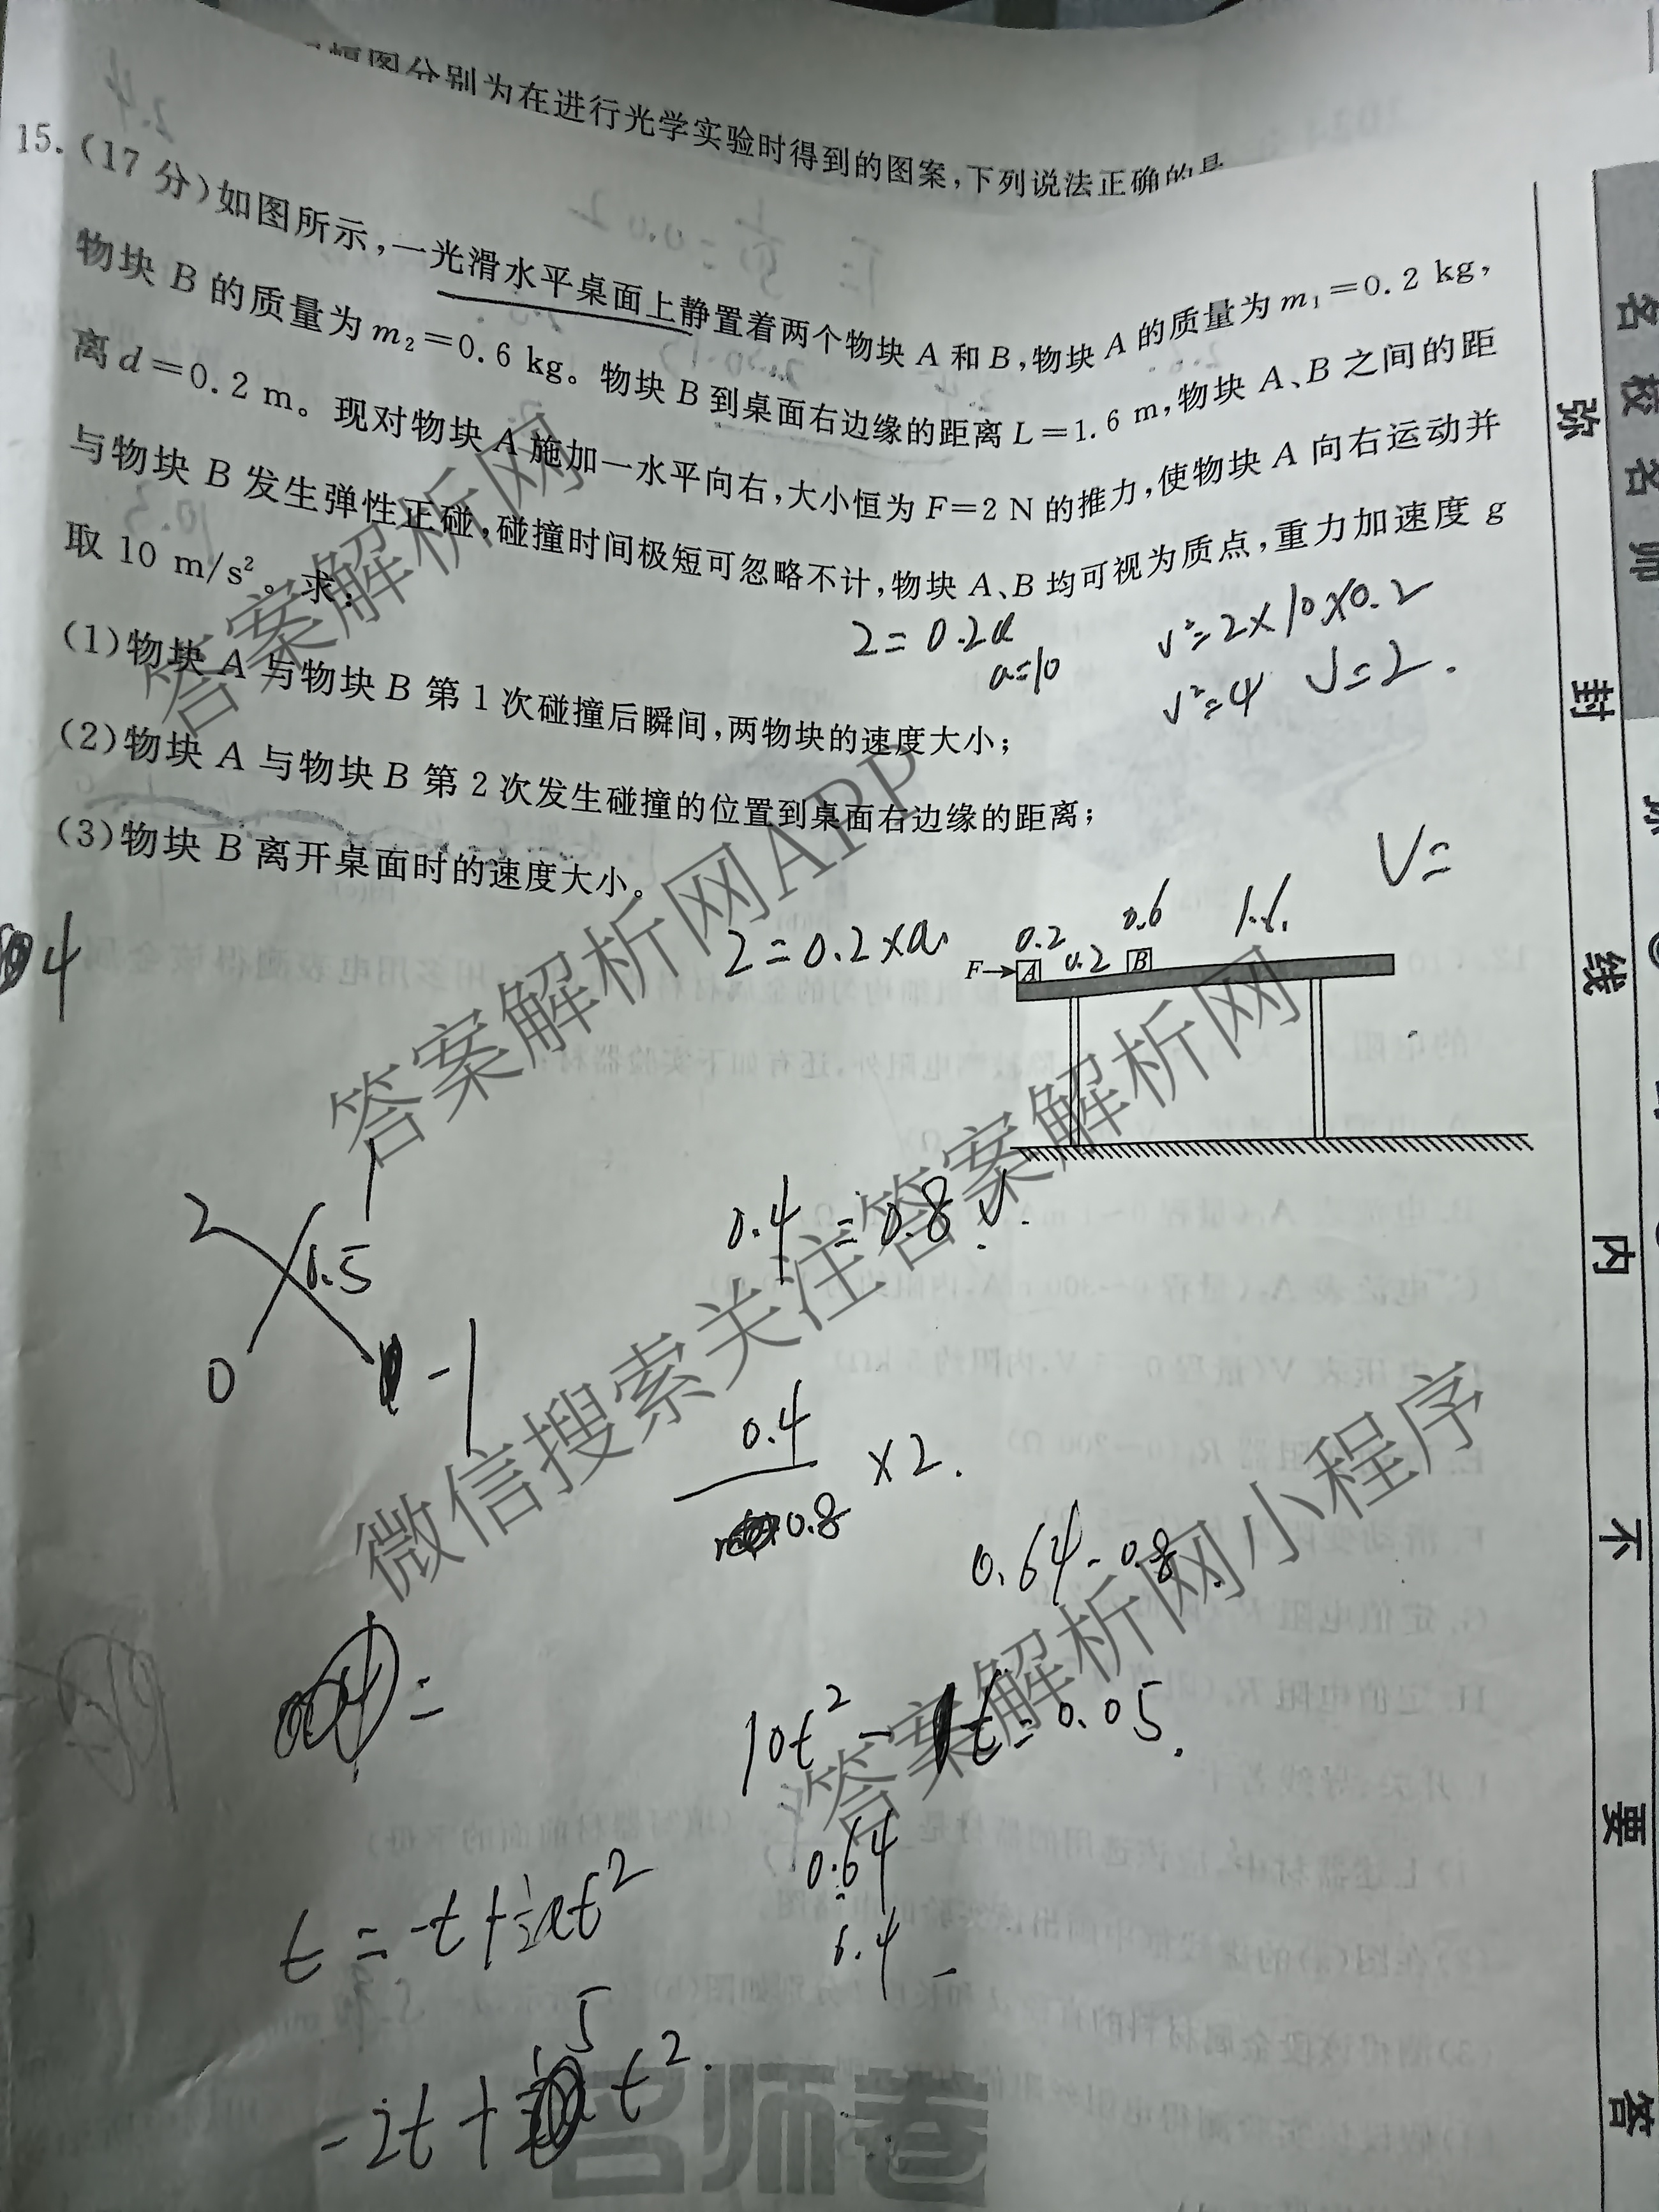 图分别为在进行光学实验时得到的图案,下列说法正确的是
15.(17分)如图所示,一光滑水平桌面上静置着两个物块A和B,物块A的质量为m₁=0.2 kg,
物块B的质量为m₂=0.6 kg。物块B到桌面右边缘的距离L=1.6 m,物块A、B之间的距
离d=0.2 m。现对物块A施加一水平向右,大小恒为F=2 N的推力,使物块A向右运动并
与物块B发生弹性正碰,碰撞时间极短可忽略不计,物块A、B均可视为质点,重力加速度g
取10 m/s²。求:
2=0.2a
a=10
v²=2×10×0.2
v²=4 v=2.
(1)物块A与物块B第1次碰撞后瞬间,两物块的速度大小;
(2)物块A与物块B第2次发生碰撞的位置到桌面右边缘的距离;
(3)物块B离开桌面时的速度大小。
V=
4
2=0.2×a.
0.2 0.2 0.6 1.6.
F→ A B
2 1
0.5
0 -1
0.4=0.8v.
0.4
0.8 ×2.
0.64-0.8
=
10t²-t=0.05.
0.64
6.4
t=-t+½at²
5
-2t+ t².
答案解析网
答案解析网APP
微信搜索关注答案解析网
答案解析网小程序
名师卷
名校名师
弥
封
线
内
不
要
答